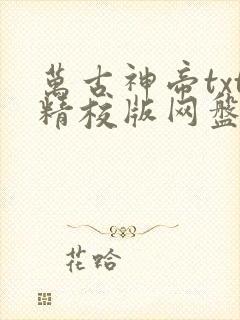 萬古神帝txt
精校版网盘
花哈